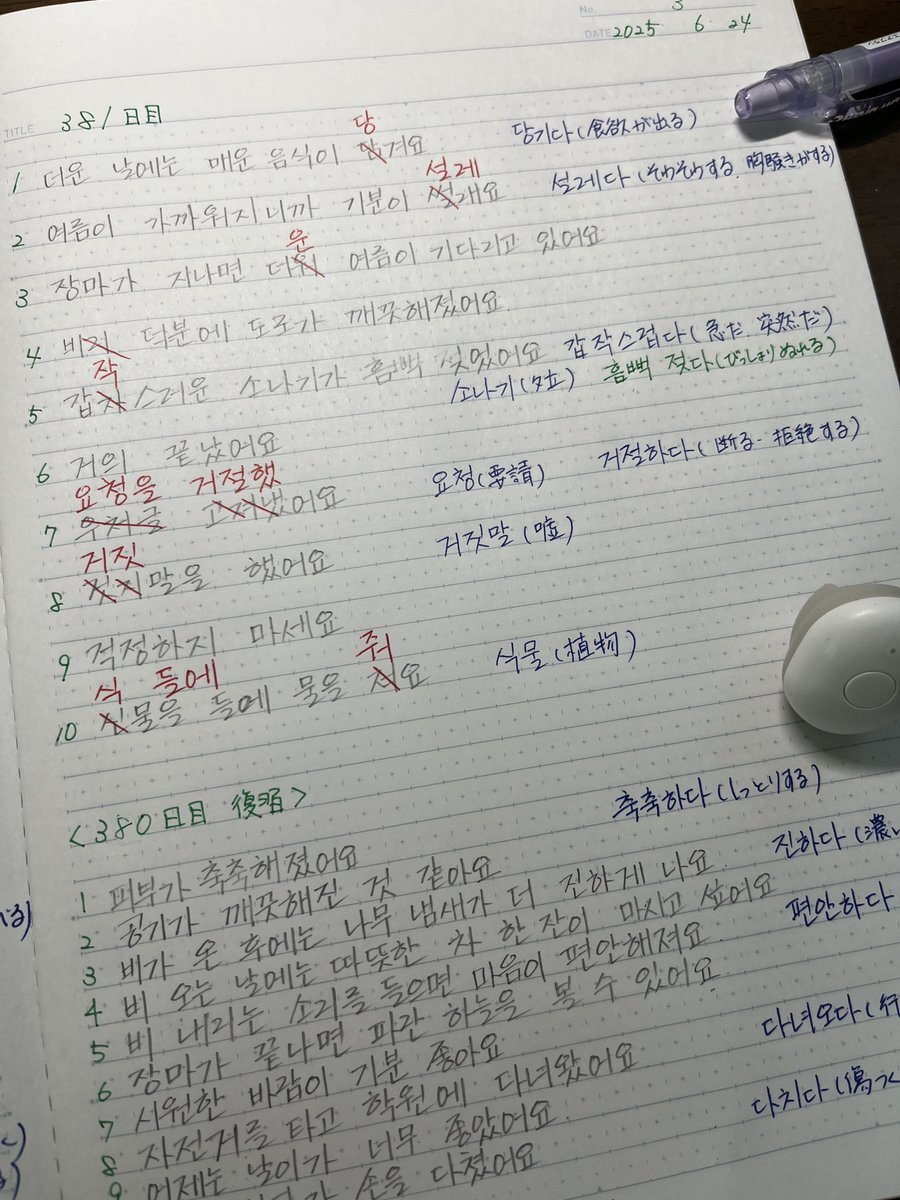 No. 3
DATE 2025 6 24
TITLE 381日目
당
1 더운 날에는 매운 음식이 겨요 당기다(食欲が出る)
설레
2 여름이 가까워지니까 기분이 설래요 설레다(そわそわする、胸騒ぎがする)
운
3 장마가 지나면 더워 여름이 기다리고 있어요
4 비가 덕분에 도로가 깨끗해졌어요
작
5 갑자스러운 소나기가 흠뻑 젖었어요 갑작스럽다(急だ、突然だ)
소나기(夕立) 흠뻑 젖다(びっしょりぬれる)
6 거의 끝났어요
요청을 거절했
7 었어요 요청(要請) 거절하다(断る・拒絶する)
거짓
8 말을 했어요 거짓말(嘘)
9 걱정하지 마세요
식 들에 줘
10 신물을 들에 물을 요 식물(植物)
<380日目 復習>
축축하다(しっとりする)
1 피부가 축축해졌어요
2 공기가 깨끗해진 것 같아요 진하다(濃い
3 비가 온 후에는 나무 냄새가 더 진하게 나요
4 비 오는 날에는 따뜻한 차 한 잔이 마시고 싶어요 편안하다
5 비 내리는 소리를 들으면 마음이 편안해져요
6 장마가 끝나면 파란 하늘을 볼 수 있어요
7 시원한 바람이 기분 좋아요 다녀오다(行
8 자전거를 타고 학원에 다녀왔어요
9 어제는 날이가 너무 좋았어요 다치다(傷つく
손을 다쳤어요